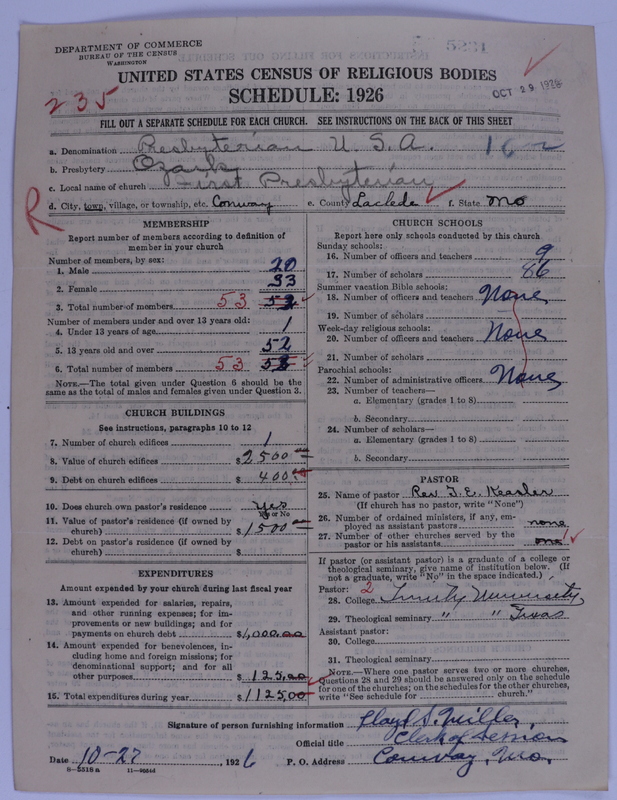 DEPARTMENT OF COMMERCE
BUREAU OF THE CENSUS
WASHINGTON
5231
UNITED STATES CENSUS OF RELIGIOUS BODIES
SCHEDULE: 1926
OCT 29 1926
235
FILL OUT A SEPARATE SCHEDULE FOR EACH CHURCH. SEE INSTRUCTIONS ON THE BACK OF THIS SHEET
a. Denomination Presbyterian U. S. A.
b. Presbytery Ozark
c. Local name of church First Presbyterian
d. City, town, village, or township, etc. Conway e. County Laclede f. State Mo
R
MEMBERSHIP
Report number of members according to definition of
member in your church
Number of members, by sex:
1. Male 20
2. Female 33
3. Total number of members 53
Number of members under and over 13 years old:
4. Under 13 years of age 1
5. 13 years old and over 52
6. Total number of members 53
NOTE.—The total given under Question 6 should be the
same as the total of males and females given under Question 3.
CHURCH BUILDINGS
See instructions, paragraphs 10 to 12
7. Number of church edifices 1
8. Value of church edifices $2500
9. Debt on church edifices $400
10. Does church own pastor's residence yes
Yes or No
11. Value of pastor's residence (if owned by
church) $1500
12. Debt on pastor's residence (if owned by
church) $
EXPENDITURES
Amount expended by your church during last fiscal year
13. Amount expended for salaries, repairs,
and other running expenses; for im-
provements or new buildings; and for
payments on church debt $1,000.00
14. Amount expended for benevolences, in-
cluding home and foreign missions; for
denominational support; and for all
other purposes $125.00
15. Total expenditures during year $1125.00
CHURCH SCHOOLS
Report here only schools conducted by this church
Sunday schools:
16. Number of officers and teachers 9
17. Number of scholars 86
Summer vacation Bible schools:
18. Number of officers and teachers None
19. Number of scholars
Week-day religious schools:
20. Number of officers and teachers None
21. Number of scholars
Parochial schools:
22. Number of administrative officers None
23. Number of teachers—
a. Elementary (grades 1 to 8)
b. Secondary
24. Number of scholars—
a. Elementary (grades 1 to 8)
b. Secondary
PASTOR
25. Name of pastor Rev. J. E. Keasler
(If church has no pastor, write "None")
26. Number of ordained ministers, if any, em-
ployed as assistant pastors none
27. Number of other churches served by the
pastor or his assistants
If pastor (or assistant pastor) is a graduate of a college or
theological seminary, give name of institution below. (If
not a graduate, write "No" in the space indicated.)
Pastor: 2
28. College Trinity University,
29. Theological seminary " " Texas
Assistant pastor:
30. College
31. Theological seminary
NOTE.—Where one pastor serves two or more churches,
Questions 28 and 29 should be answered only on the schedule
for one of the churches; on the schedules for the other churches,
write "See schedule for church."
Signature of person furnishing information Floyd S. Miller,
Official title Clerk of Session
Date 10-27, 1926 P. O. Address Conway, Mo.
8-5318a